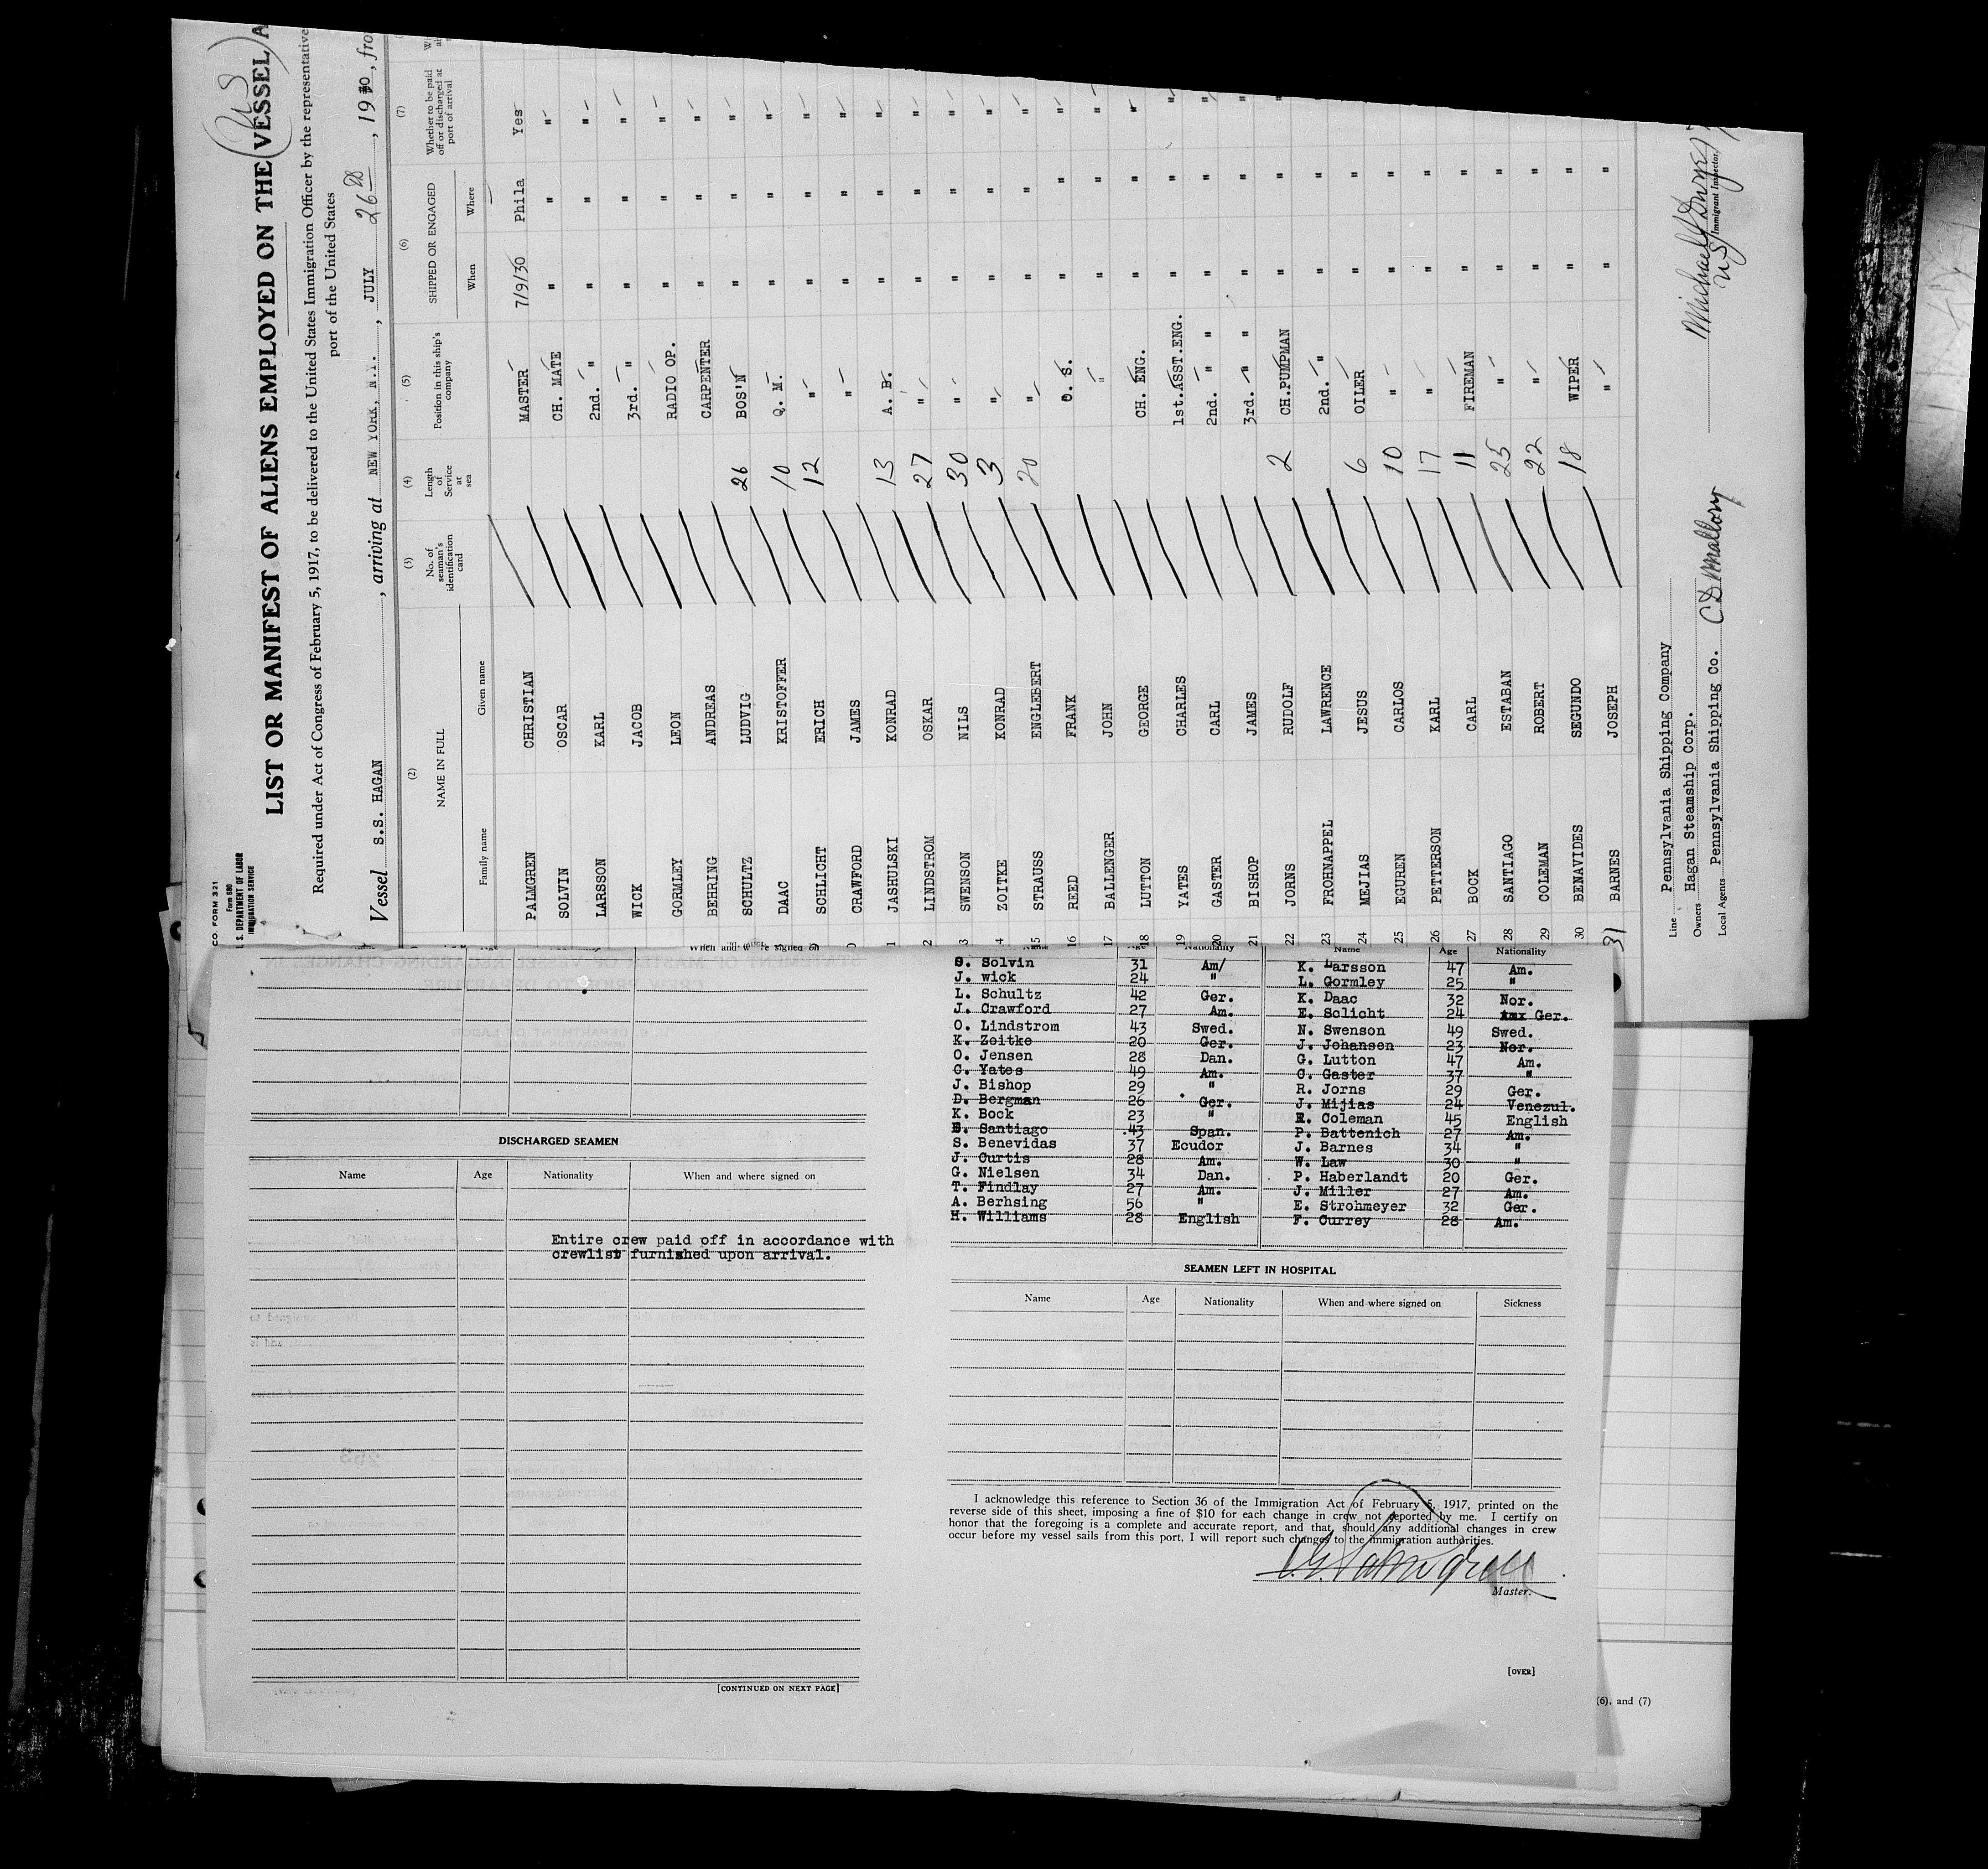 CO. FORM 321
Form 680
U. S. DEPARTMENT OF LABOR
IMMIGRATION SERVICE
LIST OR MANIFEST OF ALIENS EMPLOYED ON THE VESSEL A
Required under Act of Congress of February 5, 1917, to be delivered to the United States Immigration Officer by the representative
port of the United States
Vessel S.S. HAGAN , arriving at NEW YORK, N.Y. , JULY 26 , 1930 , fro
(2) (3) (4) (5) (6) (7)
NAME IN FULL No. of seaman's identification card Length of Service at sea Position in this ship's company SHIPPED OR ENGAGED Whether to be paid off or discharged at port of arrival
Family name Given name When Where
PALMGREN CHRISTIAN MASTER 7/9/30 Phila Yes
SOLVIN OSCAR CH. MATE " " "
LARSSON KARL 2nd. " " " "
WICK JACOB 3rd. " " " "
GORMLEY LEON RADIO OP. " " "
BEHRING ANDREAS CARPENTER " " "
SCHULTZ LUDVIG 26 BOS'N " " "
DAAC KRISTOFFER 10 Q. M. " " "
SCHLICHT ERICH 12 " " " "
CRAWFORD JAMES " " " "
1 JASHULSKI KONRAD 13 A. B. " " "
2 LINDSTROM OSKAR 27 " " " "
3 SWENSON NILS 30 " " " "
4 ZOITKE KONRAD 3 " " " "
15 STRAUSS ENGLEBERT 20 " " " "
16 REED FRANK O. S. " " "
17 BALLENGER JOHN " " " "
18 LUTTON GEORGE CH. ENG. " " "
19 YATES CHARLES 1st.ASST.ENG. " " "
20 GASTER CARL 2nd. " " " " "
21 BISHOP JAMES 3rd. " " " " "
22 JORNS RUDOLF 2 CH.PUMPMAN " " "
23 FROHNAPPEL LAWRENCE 2nd. " " "
24 MEJIAS JESUS 6 OILER " "
25 EGUREN CARLOS 10 " " "
26 PETTERSON KARL 17 " " "
27 BOCK CARL 11 FIREMAN " "
28 SANTIAGO ESTABAN 25 " " "
29 COLEMAN ROBERT 22 " " "
30 BENAVIDES SEGUNDO 18 WIPER " "
31 BARNES JOSEPH " " "
Line Pennsylvania Shipping Company
Owners Hagan Steamship Corp.
Local Agents Pennsylvania Shipping Co. C D Mallory
Immigrant Inspector
When and where signed on
Name Age Nationality Name Age Nationality
O. Solvin 31 Am/ K. Larsson 47 Am.
J. wick 24 " L. Gormley 25 "
L. Schultz 42 Ger. K. Daac 32 Nor.
J. Crawford 27 Am. E. Sclicht 24 Ger.
O. Lindstrom 43 Swed. N. Swenson 49 Swed.
K. Zoitke 20 Ger. J. Johansen 23 Nor.
O. Jensen 28 Dan. G. Lutton 47 Am.
C. Yates 49 Am. C. Gaster 37 "
J. Bishop 29 " R. Jorns 29 Ger.
D. Bergman 26 Ger. J. Mijias 24 Venezul.
K. Bock 23 " R. Coleman 45 English
E. Santiago 43 Span. P. Battenich 27 Am.
S. Benevidas 37 Ecudor J. Barnes 34 "
J. Curtis 28 Am. W. Law 30 "
G. Nielsen 34 Dan. P. Haberlandt 20 Ger.
T. Findlay 27 Am. J. Miller 27 Am.
A. Berhsing 56 " E. Strohmeyer 32 Ger.
H. Williams 28 English F. Currey 28 Am.
DISCHARGED SEAMEN
Name Age Nationality When and where signed on
Entire crew paid off in accordance with
crewlist furnished upon arrival.
[CONTINUED ON NEXT PAGE]
SEAMEN LEFT IN HOSPITAL
Name Age Nationality When and where signed on Sickness
I acknowledge this reference to Section 36 of the Immigration Act of February 5, 1917, printed on the
reverse side of this sheet, imposing a fine of $10 for each change in crew not reported by me. I certify on
honor that the foregoing is a complete and accurate report, and that, should any additional changes in crew
occur before my vessel sails from this port, I will report such changes to the immigration authorities.
Master.
[OVER]
(6), and (7)